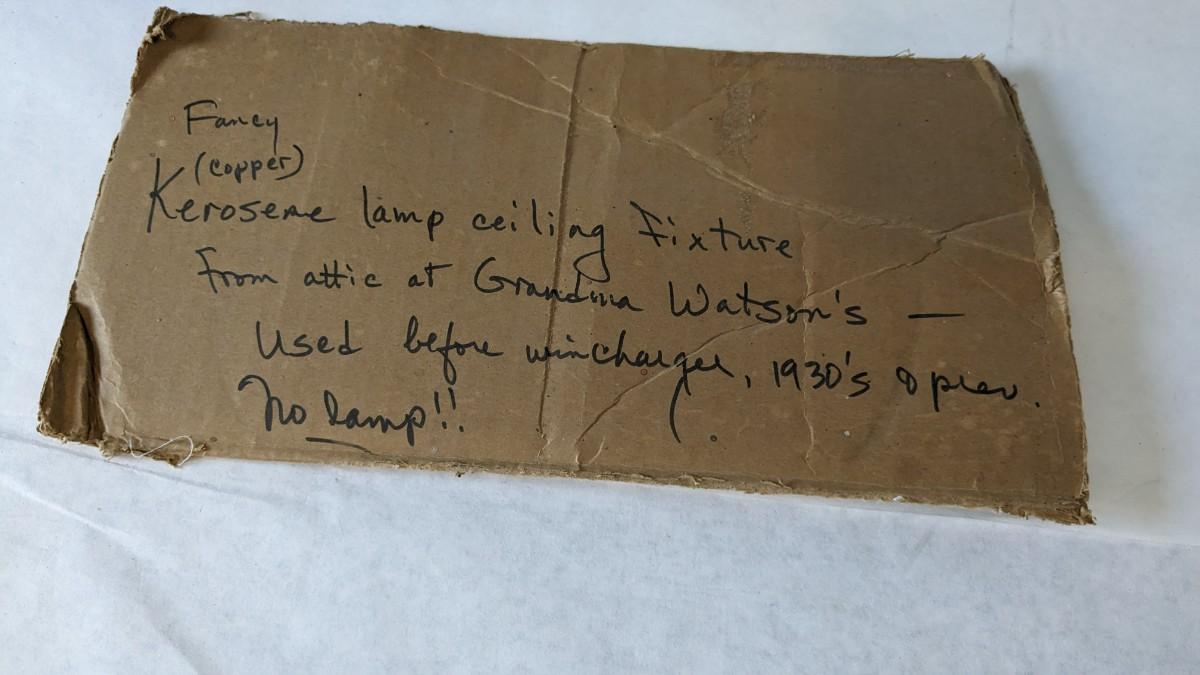 Fancy
(copper)
Kerosene lamp ceiling Fixture
From attic at Grandma Watson's —
Used before wincharger, 1930's & prev.
No lamp!!